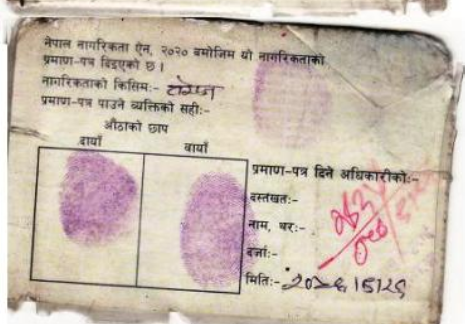 नेपाल नागरिकता ऐन, २०२० बमोजिम यो नागरिकताको
प्रमाण-पत्र दिइएको छ ।
नागरिकताको किसिम:- वंशज
प्रमाण-पत्र पाउने व्यक्तिको सही:-
औंठाको छाप
दायाँ बायाँ
प्रमाण-पत्र दिने अधिकारीको:-
दस्तखत:-
नाम, थर:-
दर्जा:-
मिति:-